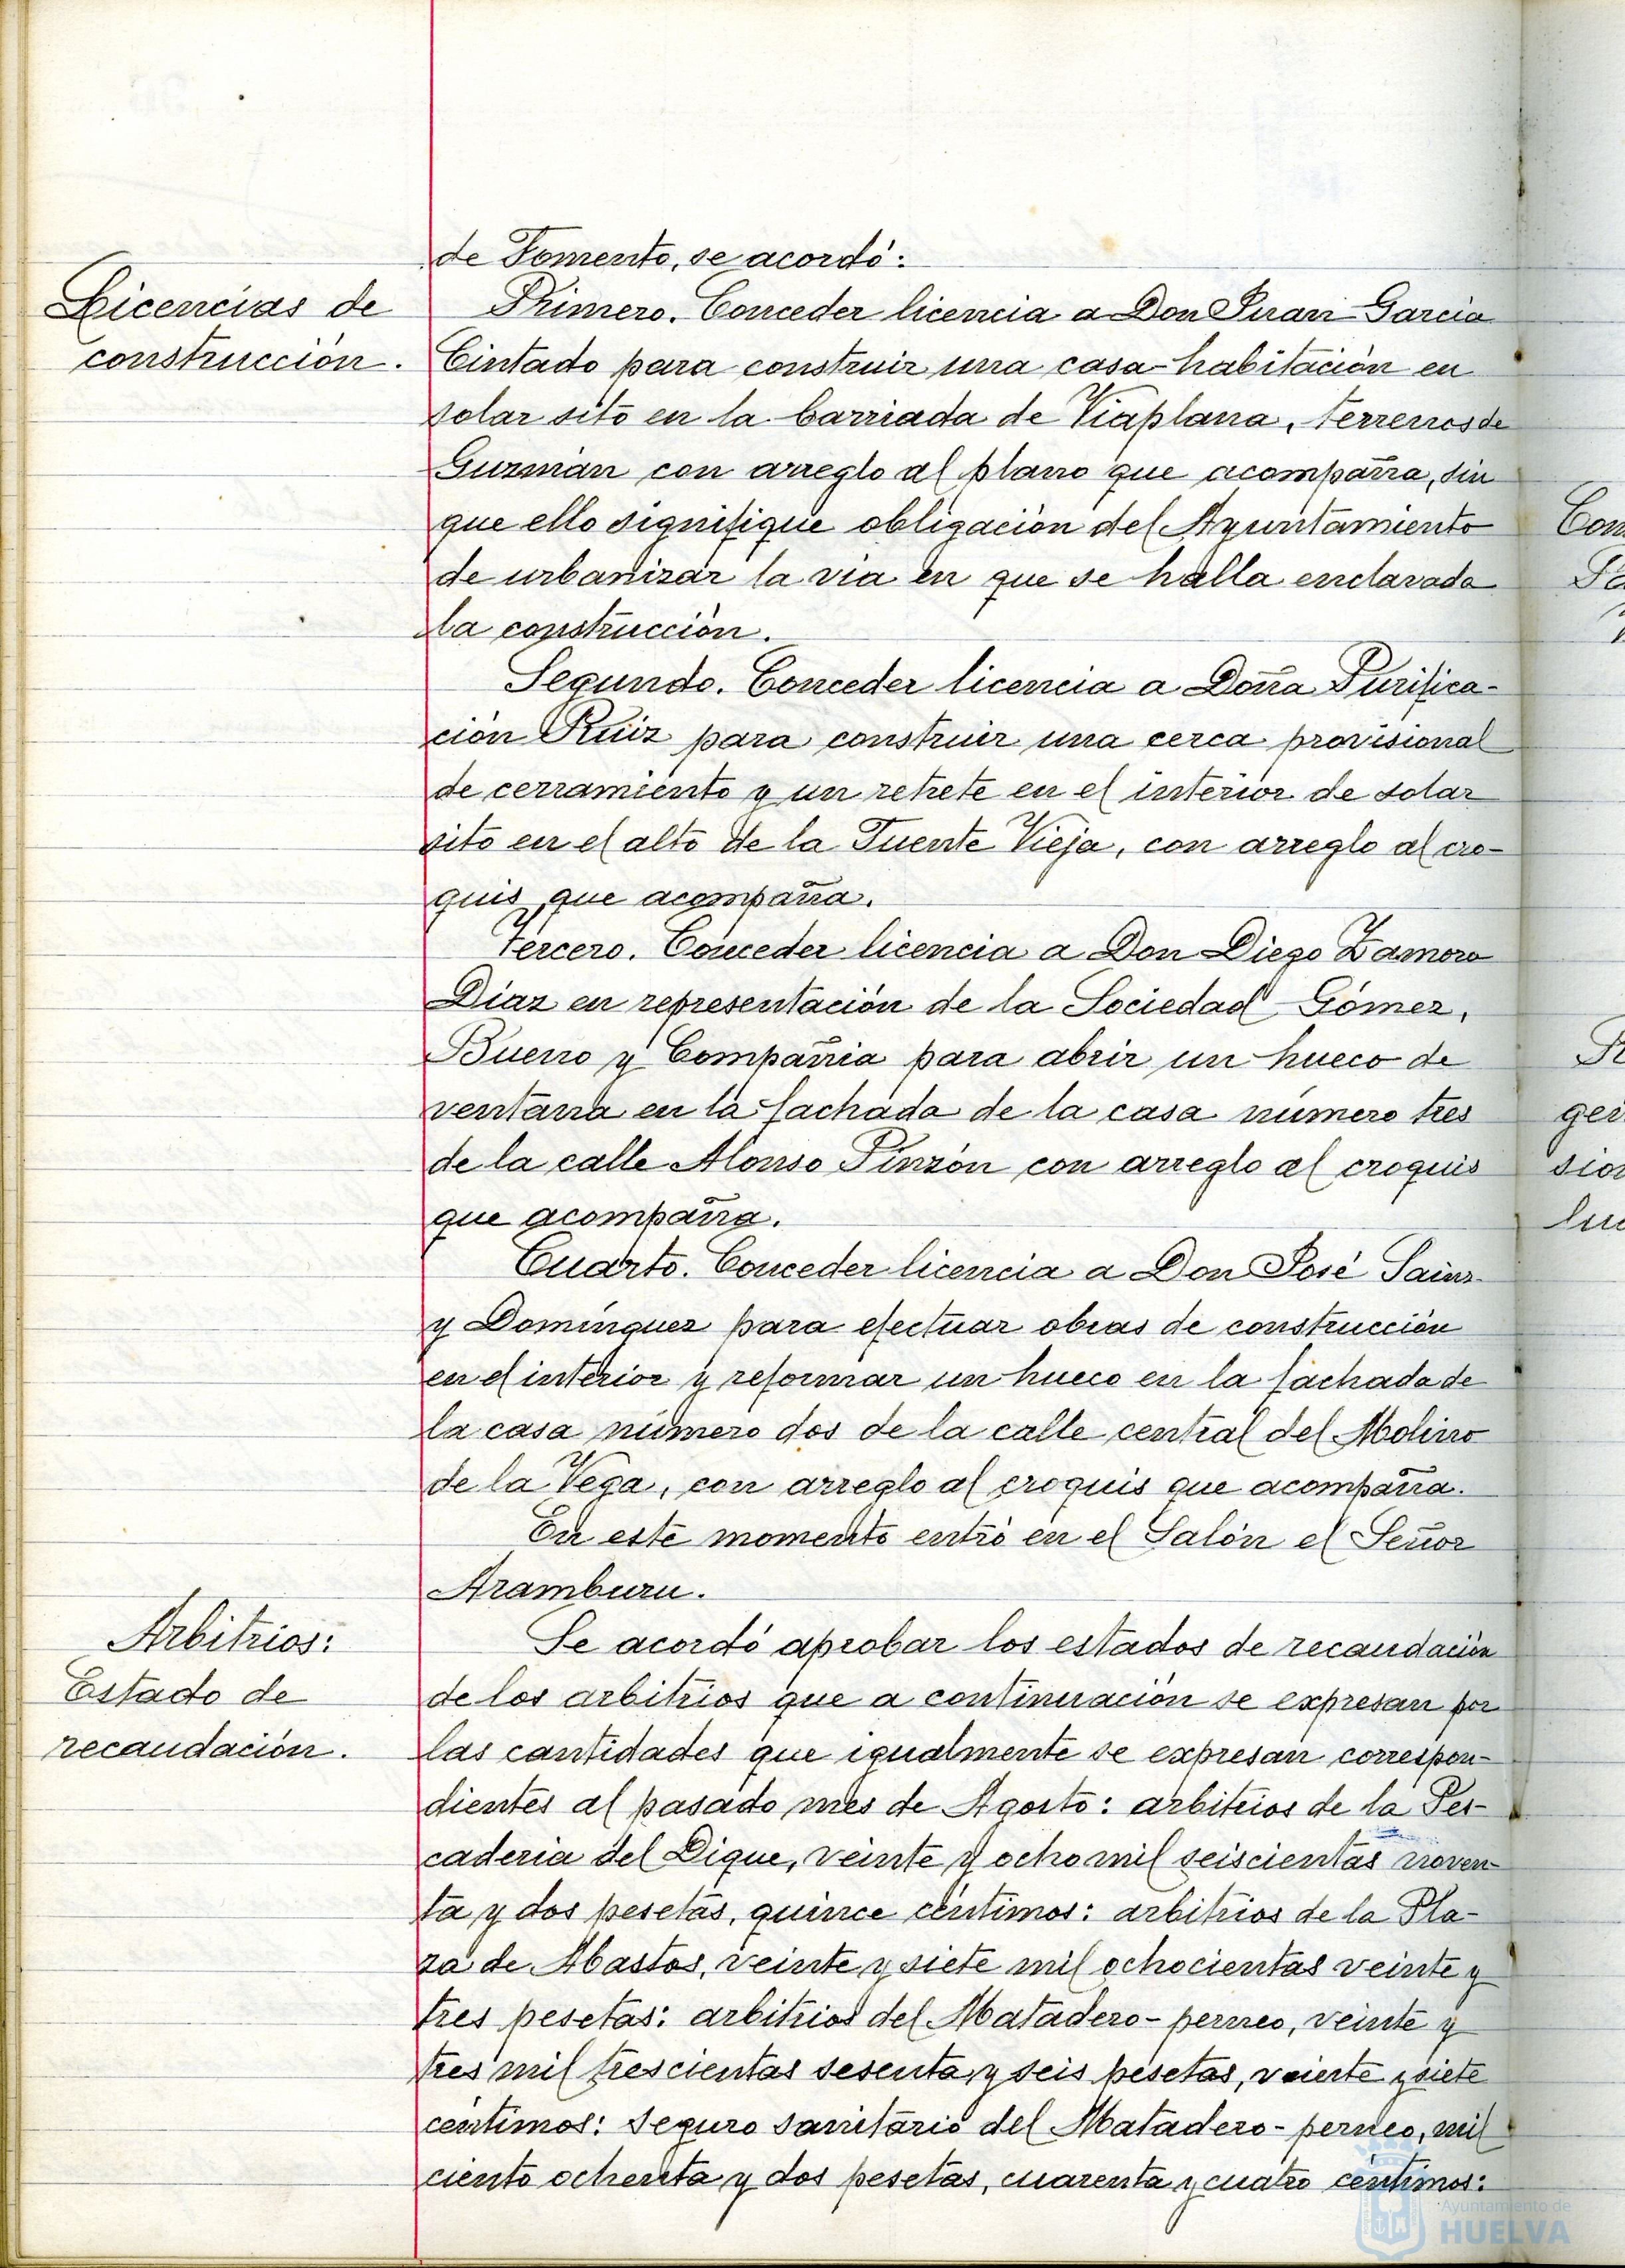 de Fomento, se acordó:
Licencias de
construcción.
Primero. Conceder licencia a Don Juan García
Cintado para construir una casa-habitación en
solar sito en la barriada de Viaplana, terrenos de
Guzmán con arreglo al plano que acompaña, sin
que ello signifique obligación del Ayuntamiento
de urbanizar la vía en que se halla enclavada
la construcción.
Segundo. Conceder licencia a Doña Purifica-
ción Ruiz para construir una cerca provisional
de cerramiento y un retrete en el interior de solar
sito en el alto de la Fuente Vieja, con arreglo al cro-
quis que acompaña.
Tercero. Conceder licencia a Don Diego Zamora
Díaz en representación de la Sociedad Gómez,
Bueno y Compañia para abrir un hueco de
ventana en la fachada de la casa número tres
de la calle Alonso Pinzón con arreglo al croquis
que acompaña.
Cuarto. Conceder licencia a Don José Sainz
y Domínguez para efectuar obras de construcción
en el interior y reformar un hueco en la fachada de
la casa número dos de la calle central del Molino
de la Vega, con arreglo al croquis que acompaña.
En este momento entró en el Salón el Señor
Aramburu.
Arbitrios:
Estado de
recaudación.
Se acordó aprobar los estados de recaudación
de los arbitrios que a continuación se expresan por
las cantidades que igualmente se expresan correspon-
dientes al pasado mes de Agosto: arbitrios de la Pes-
caderia del Dique, veinte y ocho mil seiscientas noven-
ta y dos pesetas, quince céntimos: arbitrios de la Pla-
za de Abastos, veinte y siete mil ochocientas veinte y
tres pesetas: arbitrios del Matadero-perneo, veinte y
tres mil trescientas sesenta y seis pesetas, veinte y siete
céntimos: Seguro sanitario del Matadero-perneo, mil
ciento ochenta y dos pesetas, cuarenta y cuatro céntimos:
Ayuntamiento de
HUELVA